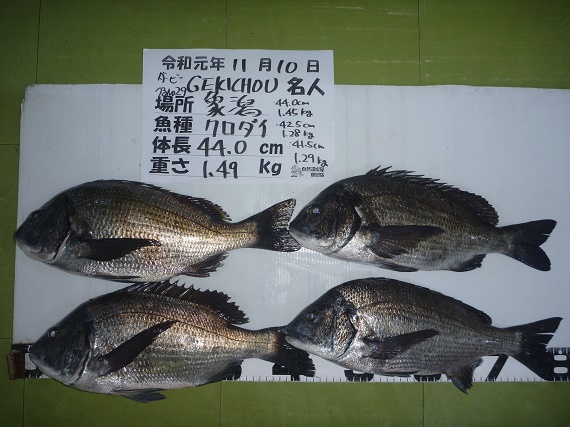 令和元年11月10日
GEKICHOU 名人
場所 象潟 44.0cm 1.45kg
魚種 クロダイ 42.5cm 1.28kg
体長 44.0 cm 41.5cm
重さ 1.49 kg 1.29kg